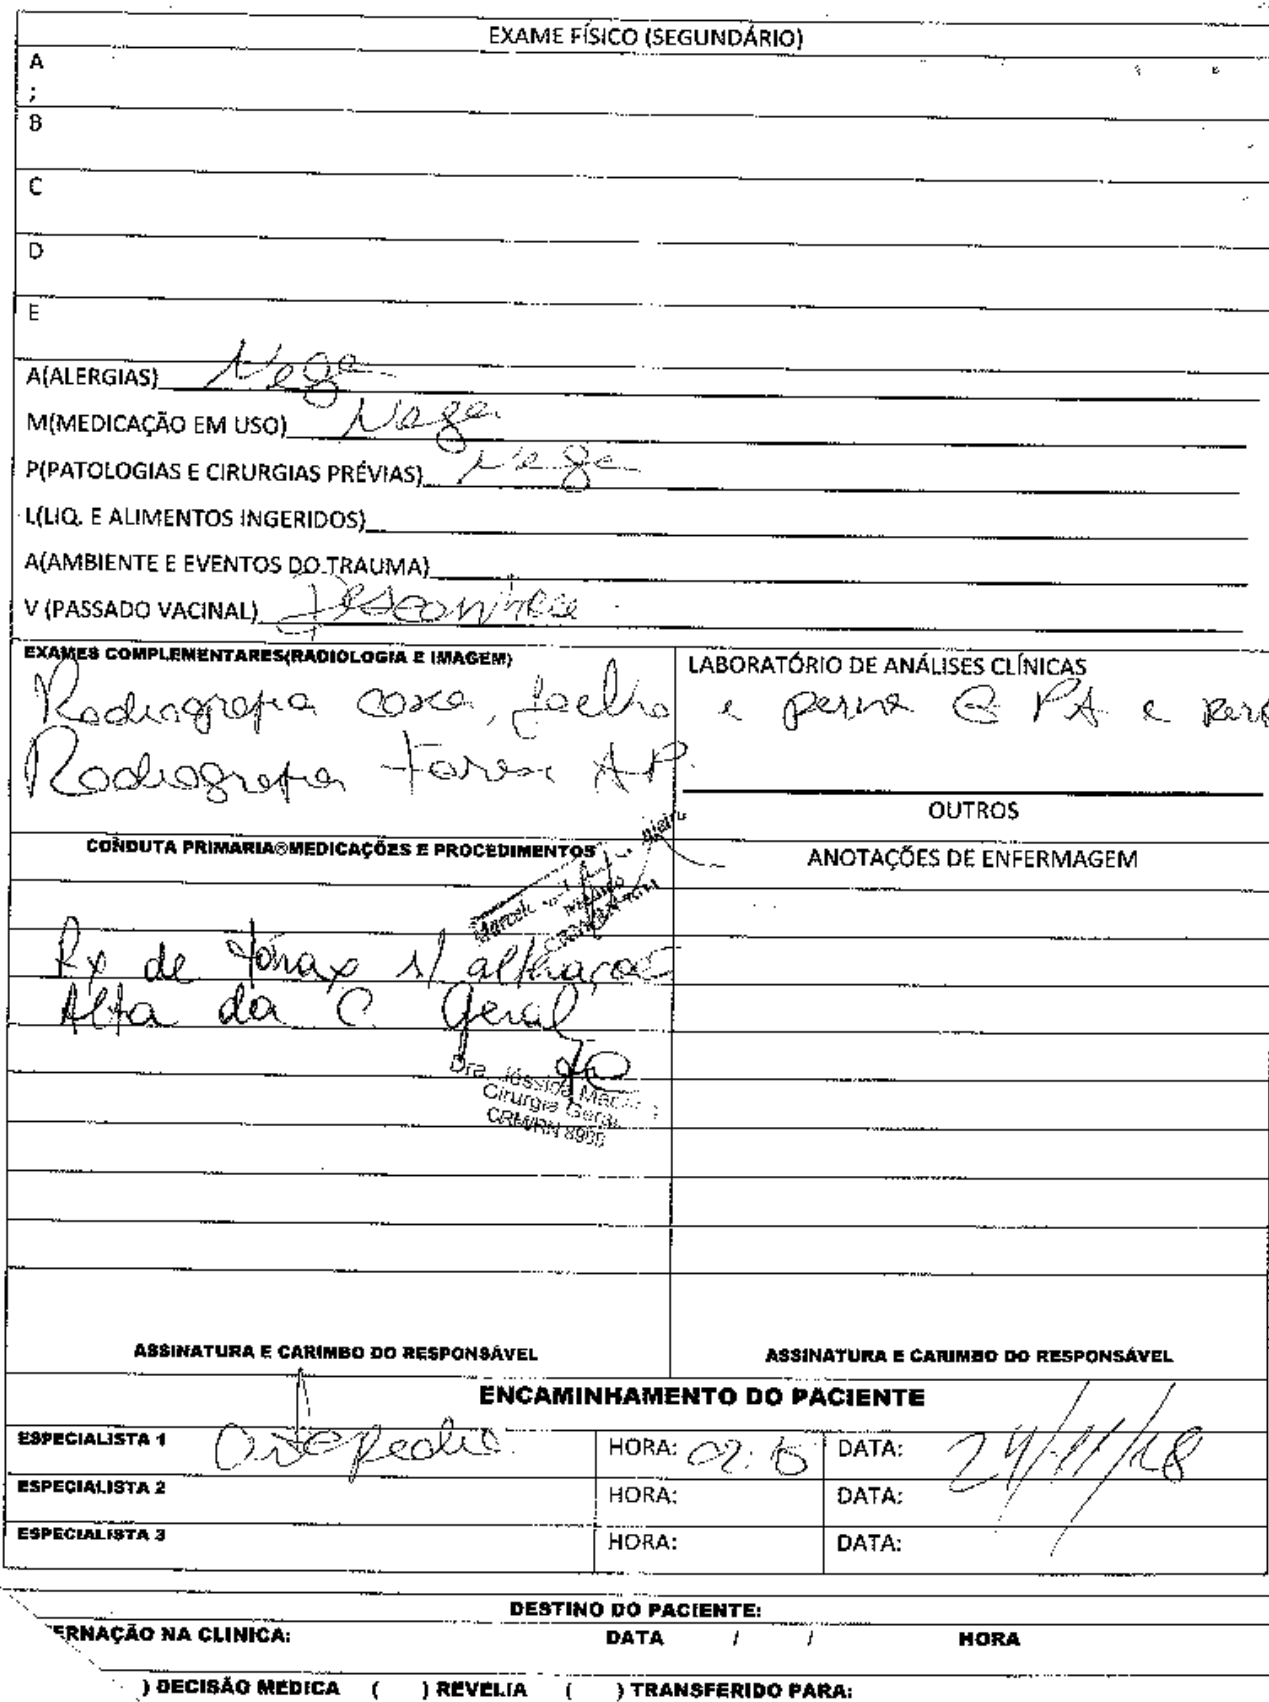 EXAME FÍSICO (SEGUNDÁRIO)
A
;
B
C
D
E
A(ALERGIAS) Nega
M(MEDICAÇÃO EM USO) Nega
P(PATOLOGIAS E CIRURGIAS PRÉVIAS) Nega
L(LIQ. E ALIMENTOS INGERIDOS)
A(AMBIENTE E EVENTOS DO TRAUMA)
V (PASSADO VACINAL) Desconhece
EXAMES COMPLEMENTARES(RADIOLOGIA E IMAGEM)
LABORATÓRIO DE ANÁLISES CLÍNICAS
Radiografia coxa, joelho e perna PA e
Radiografia Torax AP.
OUTROS
CONDUTA PRIMARIA®MEDICAÇÕES E PROCEDIMENTOS
ANOTAÇÕES DE ENFERMAGEM
Rx de tórax s/ alterações
Alta da C. Geral
Dra.
Cirurgia Geral
CRM/RN
ASSINATURA E CARIMBO DO RESPONSÁVEL
ASSINATURA E CARIMBO DO RESPONSÁVEL
ENCAMINHAMENTO DO PACIENTE
ESPECIALISTA 1 Ortopedia HORA: 02:15 DATA: 24/11/18
ESPECIALISTA 2 HORA: DATA:
ESPECIALISTA 3 HORA: DATA:
DESTINO DO PACIENTE:
ERNAÇÃO NA CLINICA: DATA / / HORA
) DECISÃO MEDICA ( ) REVELIA ( ) TRANSFERIDO PARA: